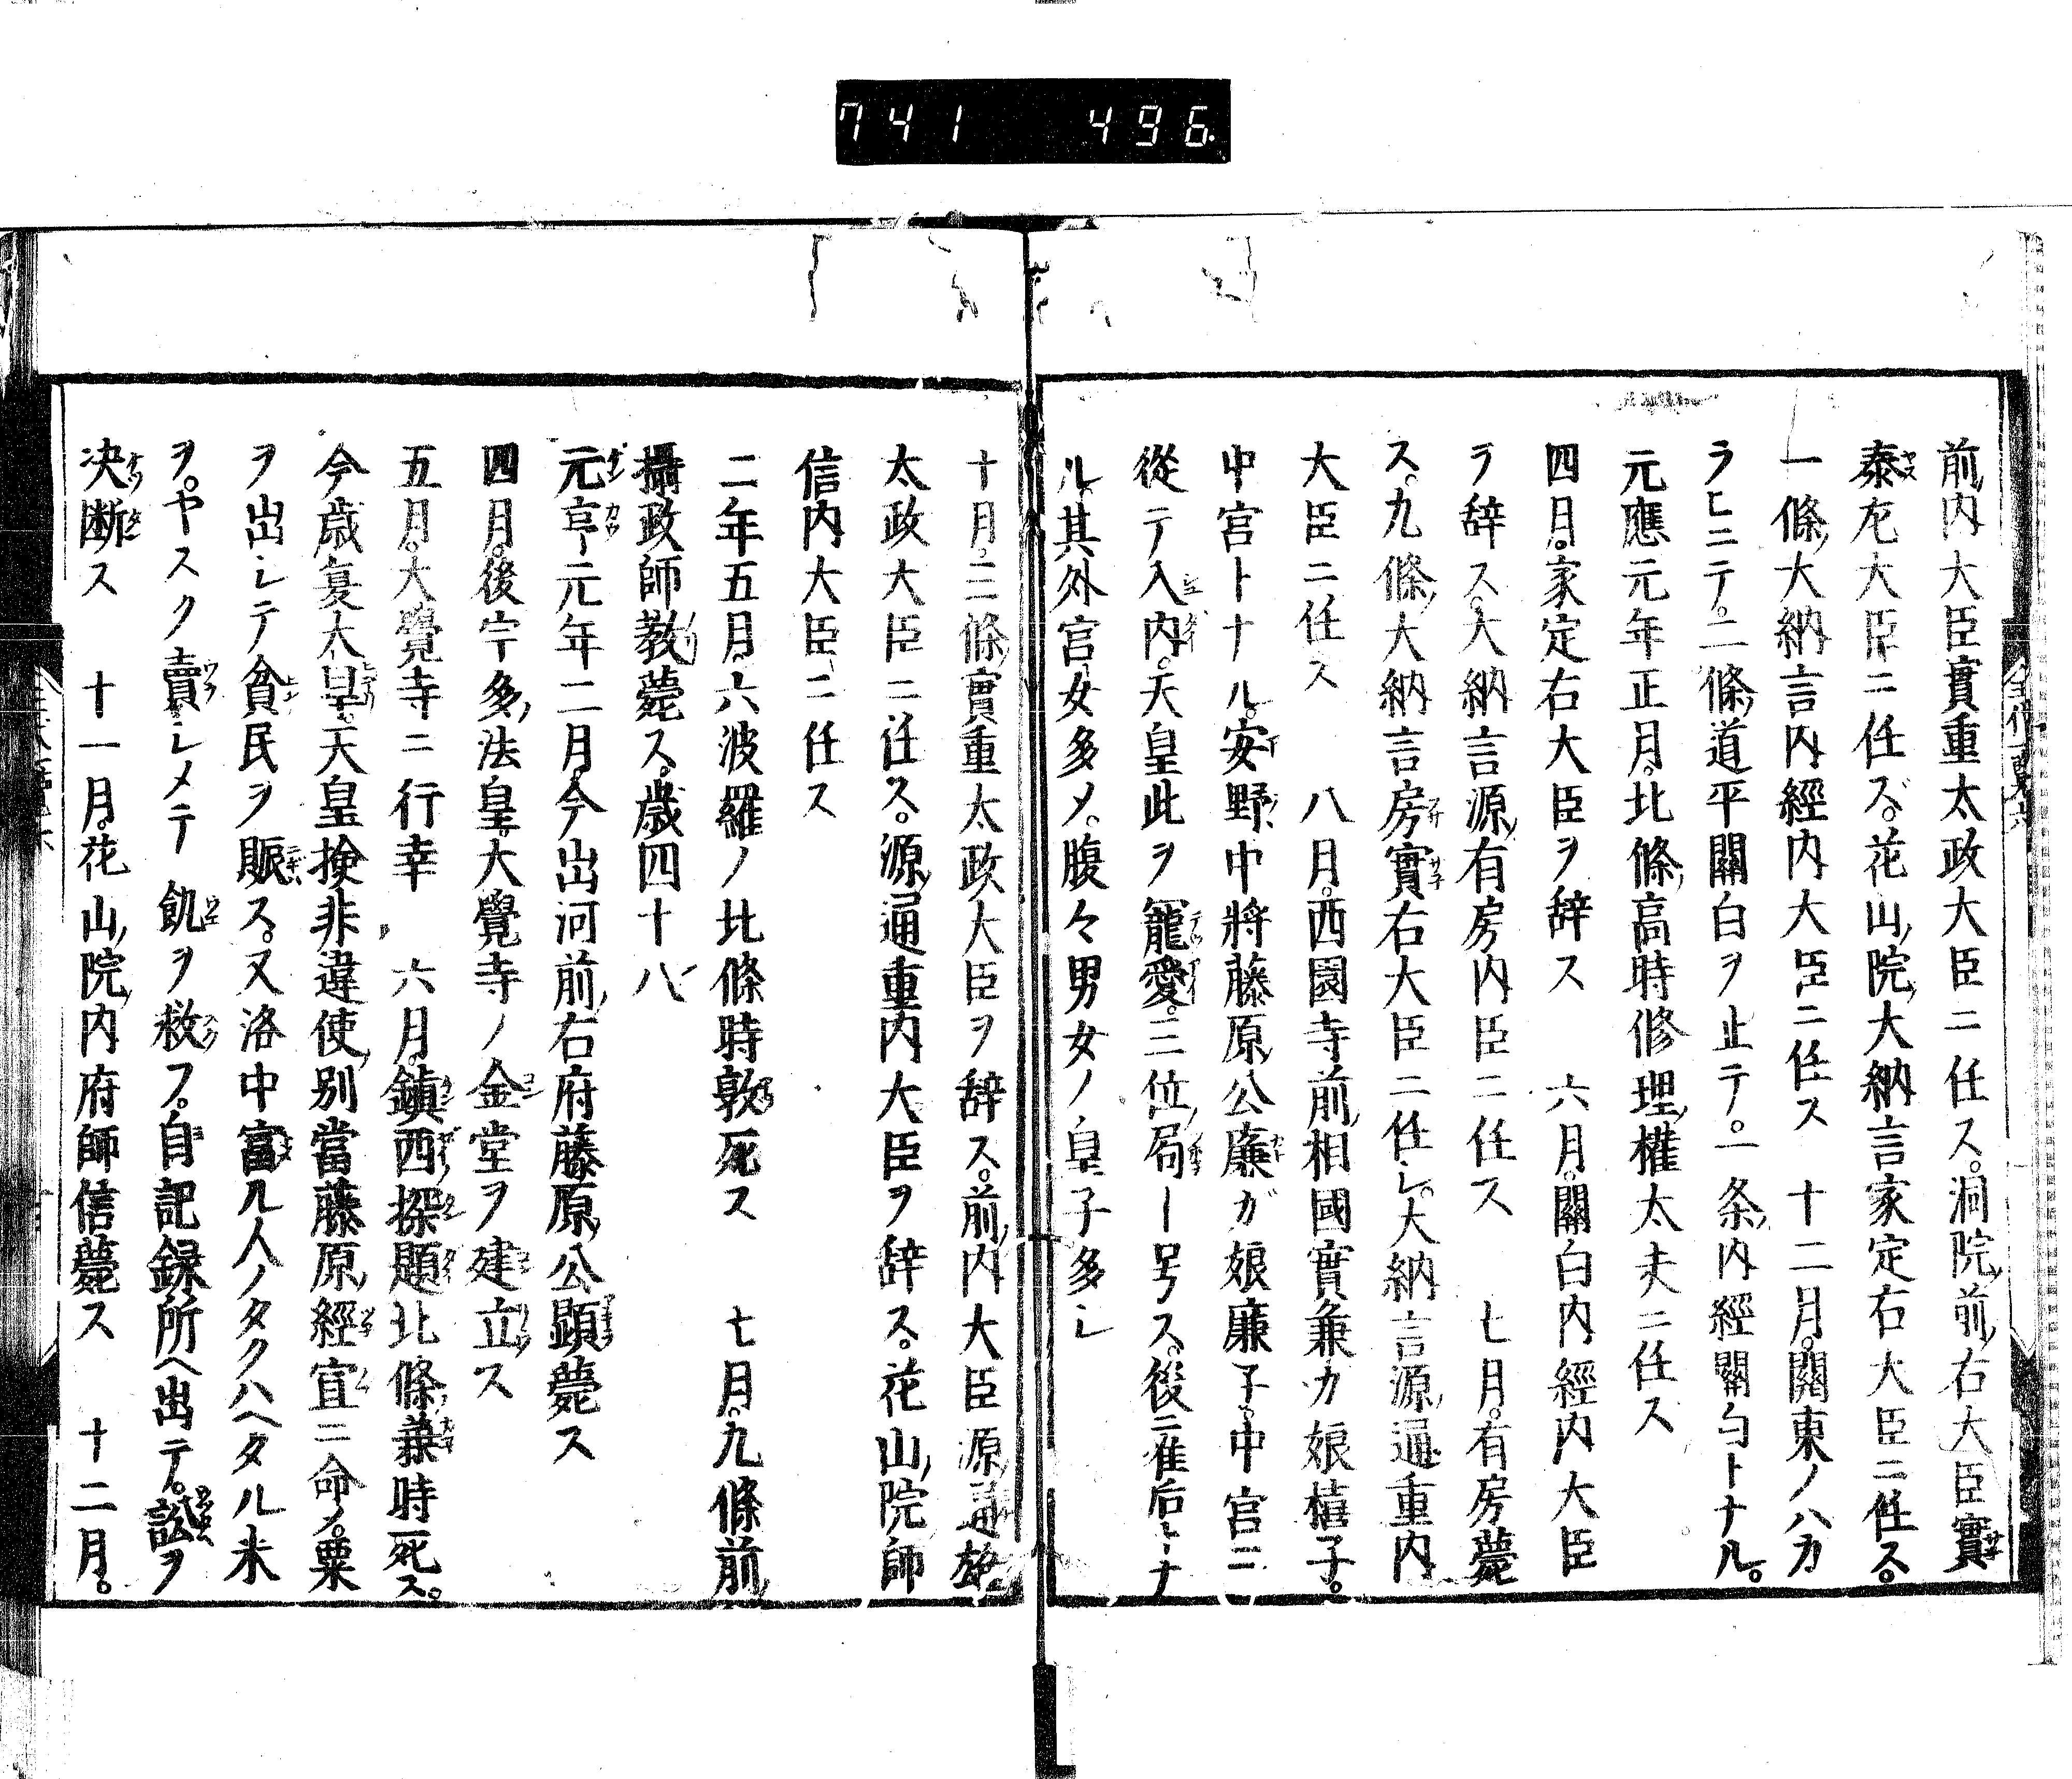 741 496.
前内大臣實重太政大臣ニ任ス。洞院前右大臣實
泰左大臣ニ任ズ。花山院大納言家定右大臣ニ任ス。
一條大納言内經内大臣ニ任ス 十二月。關東ノハカ
ラヒニテ。二條道平關白ヲ止テ。一条内經關白トナル。
元應元年正月。北條高時修理權太夫ニ任ス
四月。家定右大臣ヲ辞ス 六月。關白内經内大臣
ヲ辞ス。大納言源有房内臣ニ任ス 七月。有房薨
ス。九條大納言房實右大臣ニ任シ。大納言源通重内
大臣ニ任ス 八月。西園寺前相國實兼カ娘禧子。
中宮トナル。安野中將藤原公廉ガ娘廉子。中宮ニ
從テ入内。天皇此ヲ寵愛。三位局ト号ス。後ニ准后トナ
ル。其外宮女多メ。腹々男女ノ皇子多シ
十月。三條實重太政大臣ヲ辞ス。前内大臣源通雄
太政大臣ニ任ス。源通重内大臣ヲ辞ス。花山院師
信内大臣ニ任ス
二年五月。六波羅ノ北條時敦死ス 七月。九條前
攝政師教薨ス。歳四十八
元亨元年二月。今出河前右府藤原公顯薨ス
四月。後宇多法皇。大覺寺ノ金堂ヲ建立ス
五月。大覺寺ニ行幸 六月。鎮西探題北條兼時死ス。
今歳夏大旱。天皇撿非違使別當藤原經宣ニ命メ。粟
ヲ出シテ貧民ヲ賑ス。又洛中富ル人ノタクハヘタル米
ヲ。ヤスク賣シメテ飢ヲ救フ。自記録所ヘ出テ。訟ヲ
决断ス 十一月。花山院内府師信薨ス 十二月。